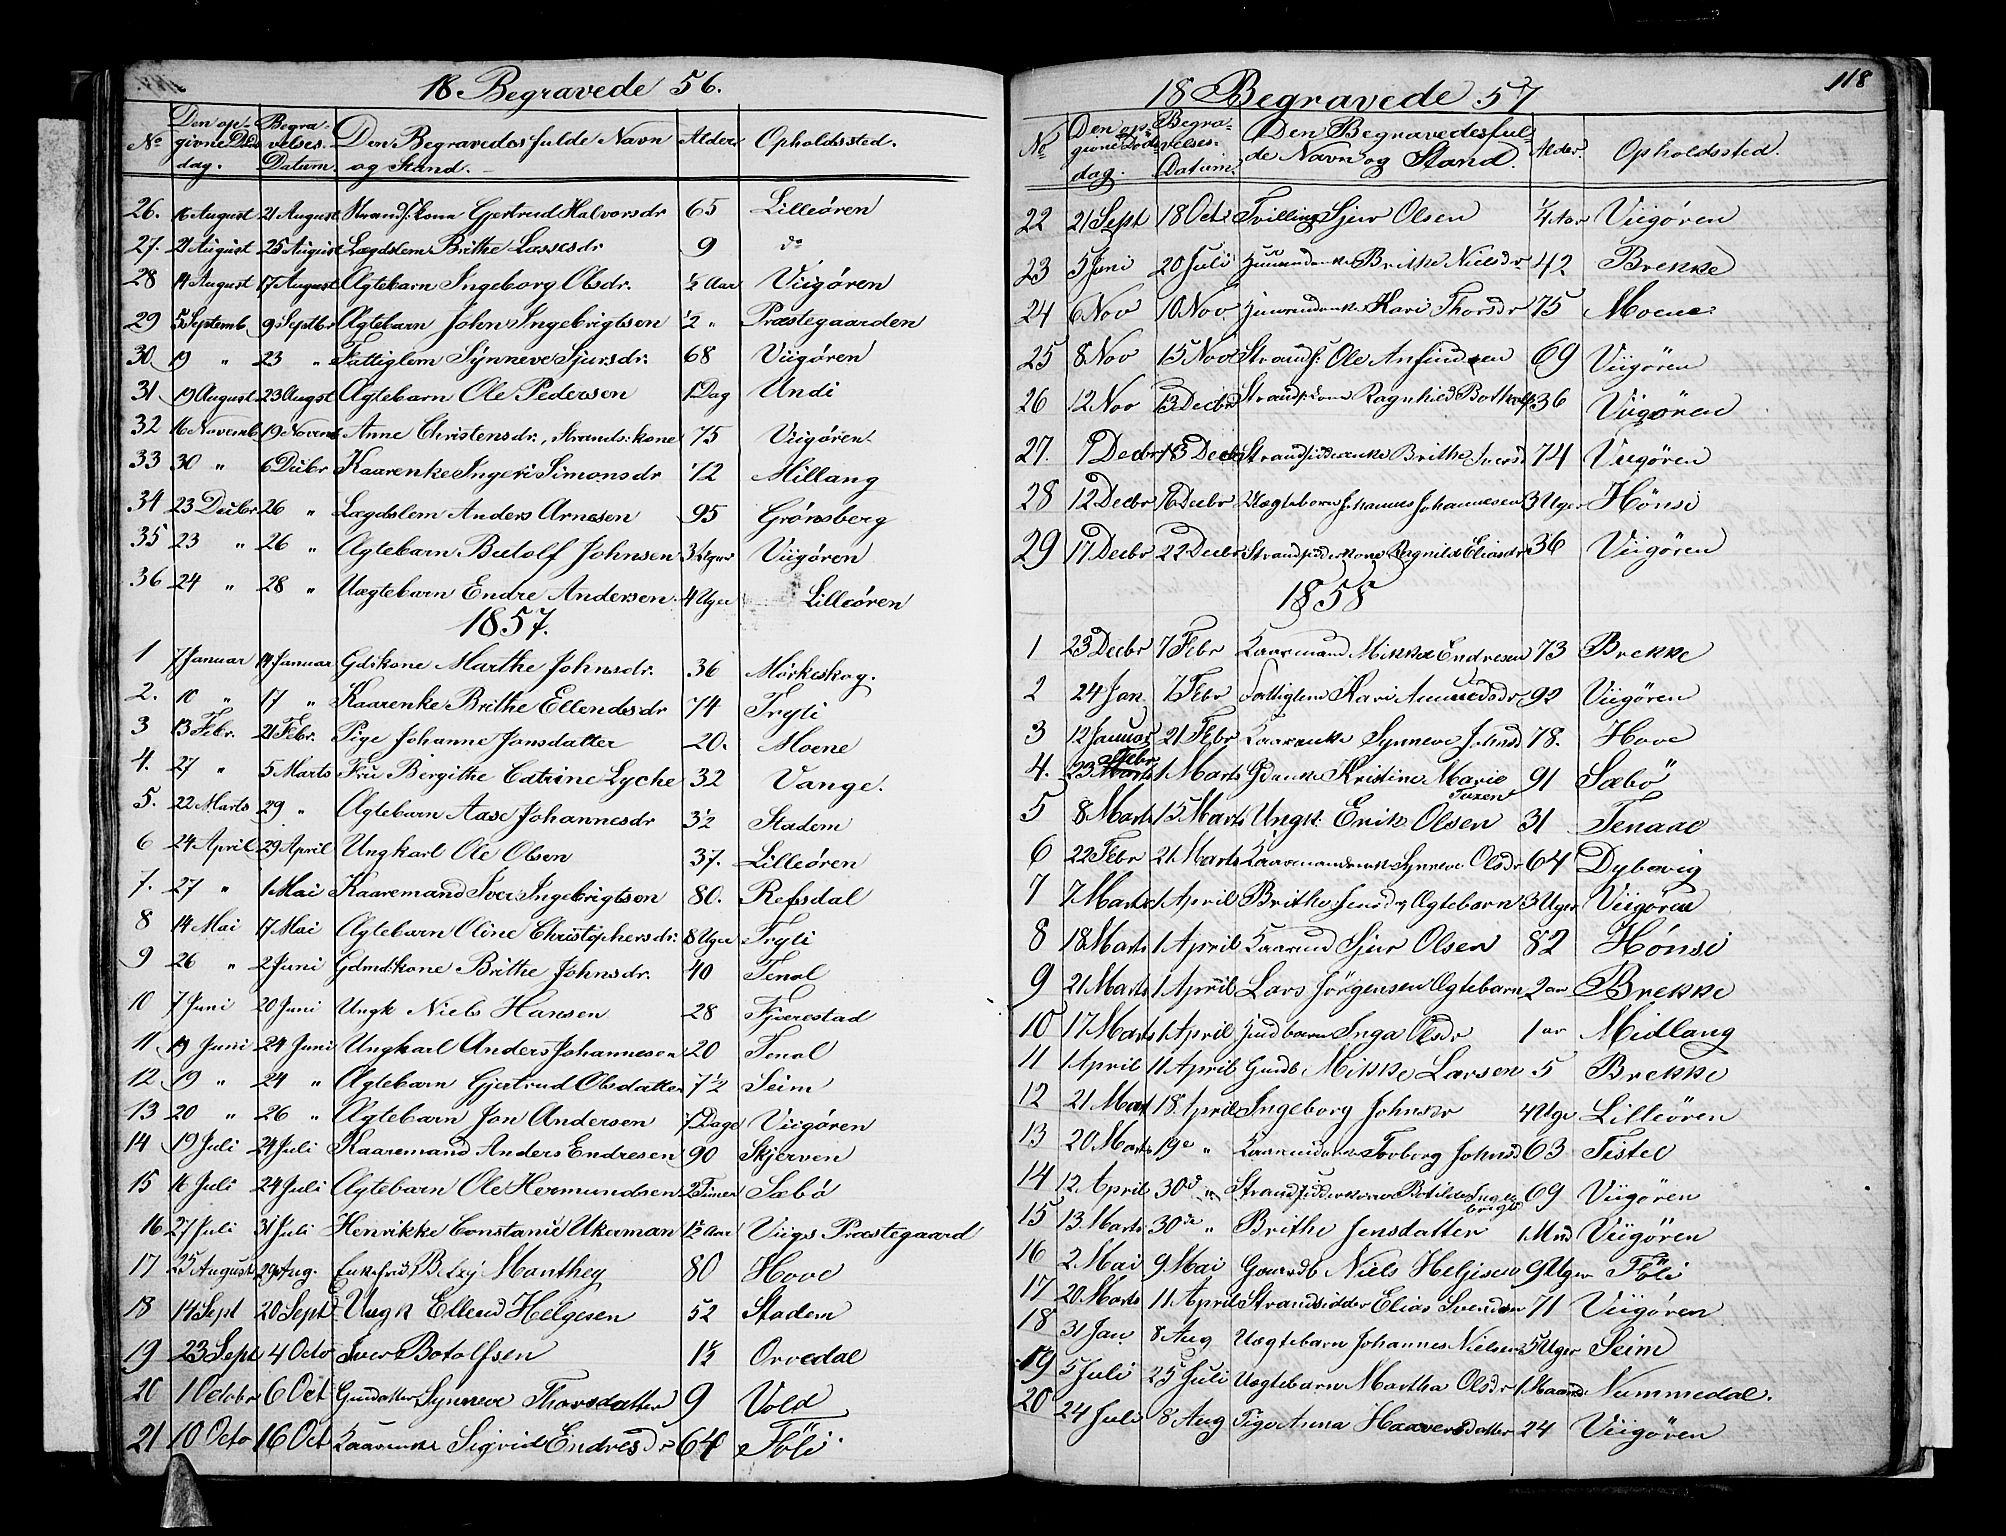 18 Begravede 56.
No Den opgivne Døds dag. Begravelses Datum. Den Begravedes fulde Navn og Stand. Alder. Opholdssted.
26. 16 August 21 August Strands: kone Gertrud Halvorsdr 65 Lilleören
27. 21 August 25 August Lægdslem Brithe Lassesdr 9 do
28 14 August 17 August Ægtebarn Ingeborg Olsdr. ½ Aar Viigören
29 5 Septemb. 9 Septbr Ægtebarn John Ingebrigtsen ½ " Præstegaarden
30 19 " 23 " Fattiglem Synneve Sjursdr. 68 Viigören
31 19 August 23 Augst Ægtebarn Ole Pedersen 1 Dag Undi
32 16 Novemb 19 Novemb Anne Christensdr., Strands: kone 75 Viigören
33 30 " 6 Decbr Kaarenke Ingeri Simonsdr 72 Millang
34 23 Decbr 26 " Lægdslem Anders Arnesen 95 Grönsberg
35 23 " 26 " Ægtebarn Butolf Johnsen 3 Uger Viigören
36 24 " 28 " Uægtebarn Endre Andersen 4 Uger Lilleören
1857.
1 7 Januar 14 Januar Gdskone Marthe Johnsdr. 36 Mörkeskog.
2. 10 " 17 " Kaarenke Brithe Ellendsdr 74 Tryli
3 13 Febr. 21 Febr. Pige Johanne Jonsdatter 20. Moene
4. 27 " 5 Marts Fru Bergithe Catrine Lyche 32 Vange.
5. 22 Marts 29 " Ægtebarn Aase Johannesdr 3½ Stadem
6 24 April 29 April Ungkarl Ole Olsen 37. Lilleören
7. 27 " 1 Mai Kaaremand Iver Ingebrigtsen 80. Refsdal
8 14 Mai 17 Mai Ægtebarn Oline Christophersdr. 8 Uger Tryli
9 26 " 2 Juni Gdmdskone Brithe Johnsdr. 40 Tenol
10 7 Juni 20 Juni Ungk Niels Hansen 28 Fjærestad
11 19 Juni 24 Juni Ungkarl Anders Johannesen 20 Tenol
12 19 " 24 " Ægtebarn Gjertrud Olsdatter 7½ Seim
13 20 " 26 " Ægtebarn Jon Andersen 7 Dage Viigören
14 19 Juli 24 Juli Kaaremand Anders Endresen 90 Skjerven
15 16 Juli 24 Juli Ægtebarn Ole Hermundsen 2 Timer Sæbö
16 27 Juli 31 Juli Henrikke Constanse Ukerman 1½ Aar Viigs Præstegaard
17 25 August 29 Aug. Enkefru Betzj Manthey 80 Hove
18 14 Sept 20 Sept Ungk Ellend Helgesen 52 Stadem
19 23 Sept 4 Octo Iver Botolfsen 1½ Orvedal
20 1 Octobr 6 Oct Gmdatter Synneve Thorsdatter 9 Vold
21 10 Octo 16 Oct Kaarenke Sigrid Endresdr 64 Föli
118
18 Begravede 57
No Den opgivne Döds dag. Begravelses. Datum. Den Begravedes fulde Navn og Stand. Alder. Opholdssted.
22 21 Sept 18 Octr Tvilling Sjur Olsen ¼ Aar Viigören
23 5 Juni 20 Juli Brithe Nielsdr 42 Brekke
24 6 Nov 10 Nov Kari Thorsdr 75 Moene
25 8 Nov 15 Nov Strands: Ole Anfindsen 69 Viigören
26 12 Nov 13 Decbr Strands: kone Ragnhild Botholfs 36 Viigören
27. 9 Decbr 13 Decbr Strandsidderenke Brithe Iversd 74 Viigören
28 12 Decbr 16 Decbr Uægtebarn Johannes Johannesen 3 Uger Hönsi
29 17 Decbr 22 Decbr Strandsidderkone Ragnild Eliasdr 36 Viigören
1858
1 23 Decbr 7 Febr Kaaremand Mikkel Endresen 73 Brekke
2 24 Jan 7 Febr Fattiglem Kari Amundsdr 92 Viigören
3 12 Januar 21 Febr Kaarenke Synneve Johnsd 78. Hove
4. 23 Febr 1 Marts Gdenke Kristine Marie Tuxen 91 Sæbö
5 8 Marts 15 Marts Ungk: Erik Olsen 31 Tenaae
6 22 Febr 21 Marts Kaaremandsenke Synneve Olsdr 64 Dybevig
7 7 Marts 1 April Brithe Jensdr, Ægtebarn 3 Uger Viigören
8 18 Marts 1 April Kaarmd Sjur Olsen 82 Hönsi
9 21 Marts 1 April Lars Jörgensen Ægtebarn 2 aar Brekke
10 17 Marts 1 April Inga Olsdr 1 ar Midlang
11 1 April 11 April Gmdb Mikkel Larsen 5 Brekke
12 21 Mart 18 April Ingeborg Johnsdr 4 Uger Lilleören
13 20 Marts 19de " Kaarmdenke Torborg Johnsd 63 Tistel
14 12 April 30de " Strandsidderkone Botilde Ingebrigts 69 Viigören
15 13 Marts 30de " Brithe Jensdatter 1 Mnd Viigören
16 2 Mai 9 Mai Gaardb Niels Heljesen 9 Uger Föli
17 20 Marts 11 April Strandsidder Elias Svendsen 71 Viigören
18 31 Jan 8 Aug Uægtebarn Johannes Nielsen 5 Uger Seim
19 5 Juli 25 Juli Uægtebarn Martha Olsdr 1 Maaned Nummedal.
20 24 Juli 8 Aug Pige Anna Haaversdatter 24 Viigören